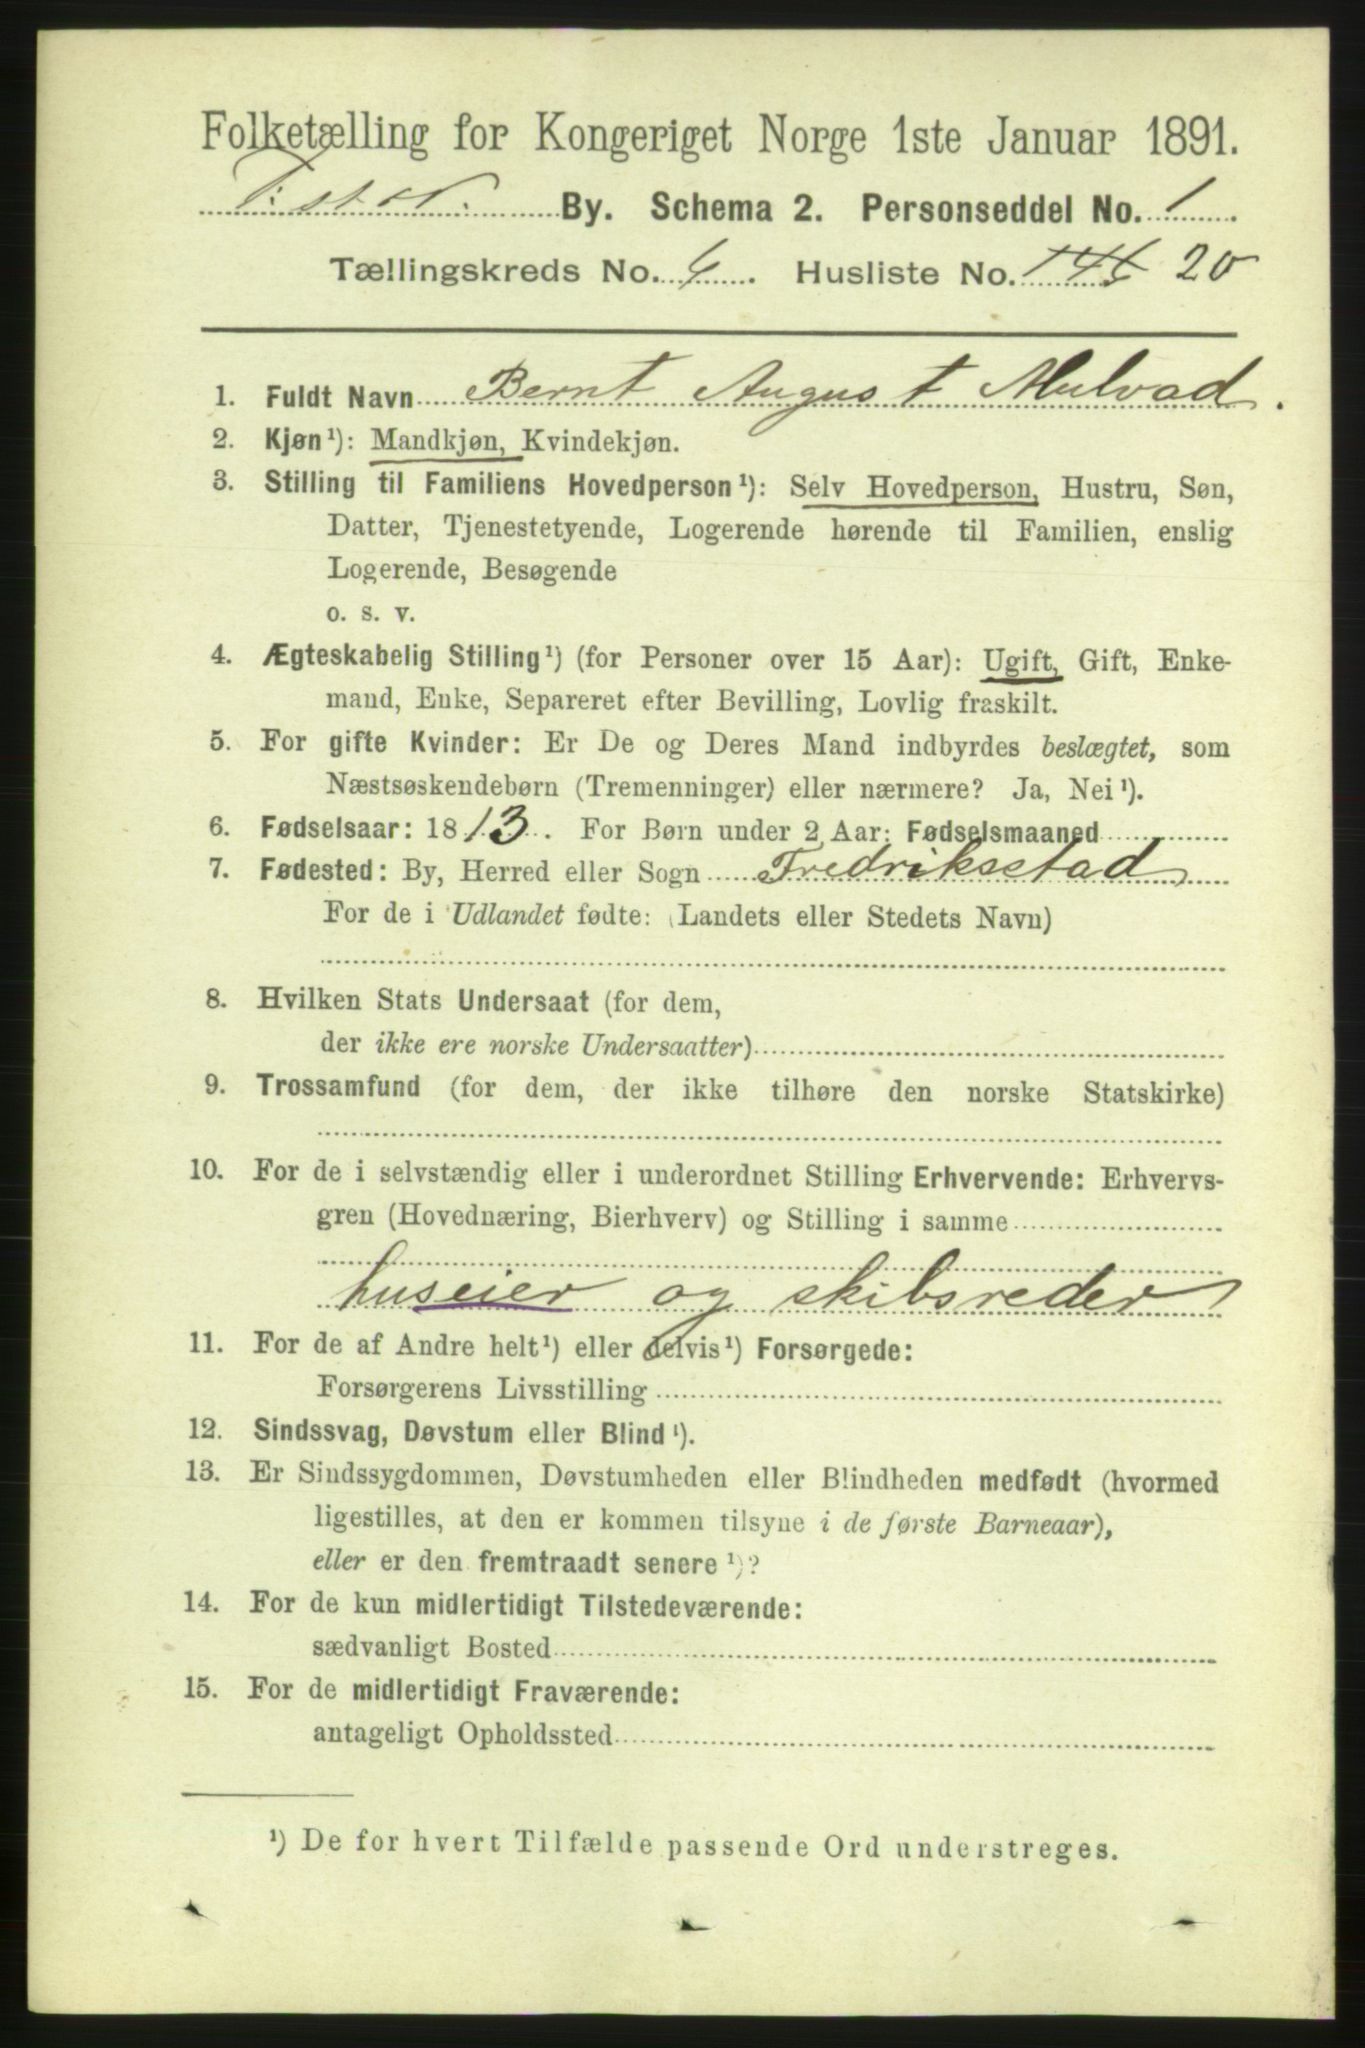 Folketælling for Kongeriget Norge 1ste Januar 1891.
F:stad. By. Schema 2. Personseddel No. 1
Tællingskreds No. 6. Husliste No. 146 20
1. Fuldt Navn Bernt August Mulvad.
2. Kjøn¹): Mandkjøn, Kvindekjøn.
3. Stilling til Familiens Hovedperson¹): Selv Hovedperson, Hustru, Søn,
Datter, Tjenestetyende, Logerende hørende til Familien, enslig
Logerende, Besøgende
o. s. v.
4. Ægteskabelig Stilling¹) (for Personer over 15 Aar): Ugift, Gift, Enke-
mand, Enke, Separeret efter Bevilling, Lovlig fraskilt.
5. For gifte Kvinder: Er De og Deres Mand indbyrdes beslægtet, som
Næstsøskendebørn (Tremenninger) eller nærmere? Ja, Nei¹).
6. Fødselsaar: 1813. For Børn under 2 Aar: Fødselsmaaned
7. Fødested: By, Herred eller Sogn Fredriksstad
For de i Udlandet fødte: (Landets eller Stedets Navn)
8. Hvilken Stats Undersaat (for dem,
der ikke ere norske Undersaatter)
9. Trossamfund (for dem, der ikke tilhøre den norske Statskirke)
10. For de i selvstændig eller i underordnet Stilling Erhvervende: Erhvervs-
gren (Hovednæring, Bierhverv) og Stilling i samme
huseier og skibsreder
11. For de af Andre helt¹) eller delvis¹) Forsørgede:
Forsørgerens Livsstilling
12. Sindssvag, Døvstum eller Blind¹).
13. Er Sindssygdommen, Døvstumheden eller Blindheden medfødt (hvormed
ligestilles, at den er kommen tilsyne i de første Barneaar),
eller er den fremtraadt senere¹)?
14. For de kun midlertidigt Tilstedeværende:
sædvanligt Bosted
15. For de midlertidigt Fraværende:
antageligt Opholdssted
¹) De for hvert Tilfælde passende Ord understreges.